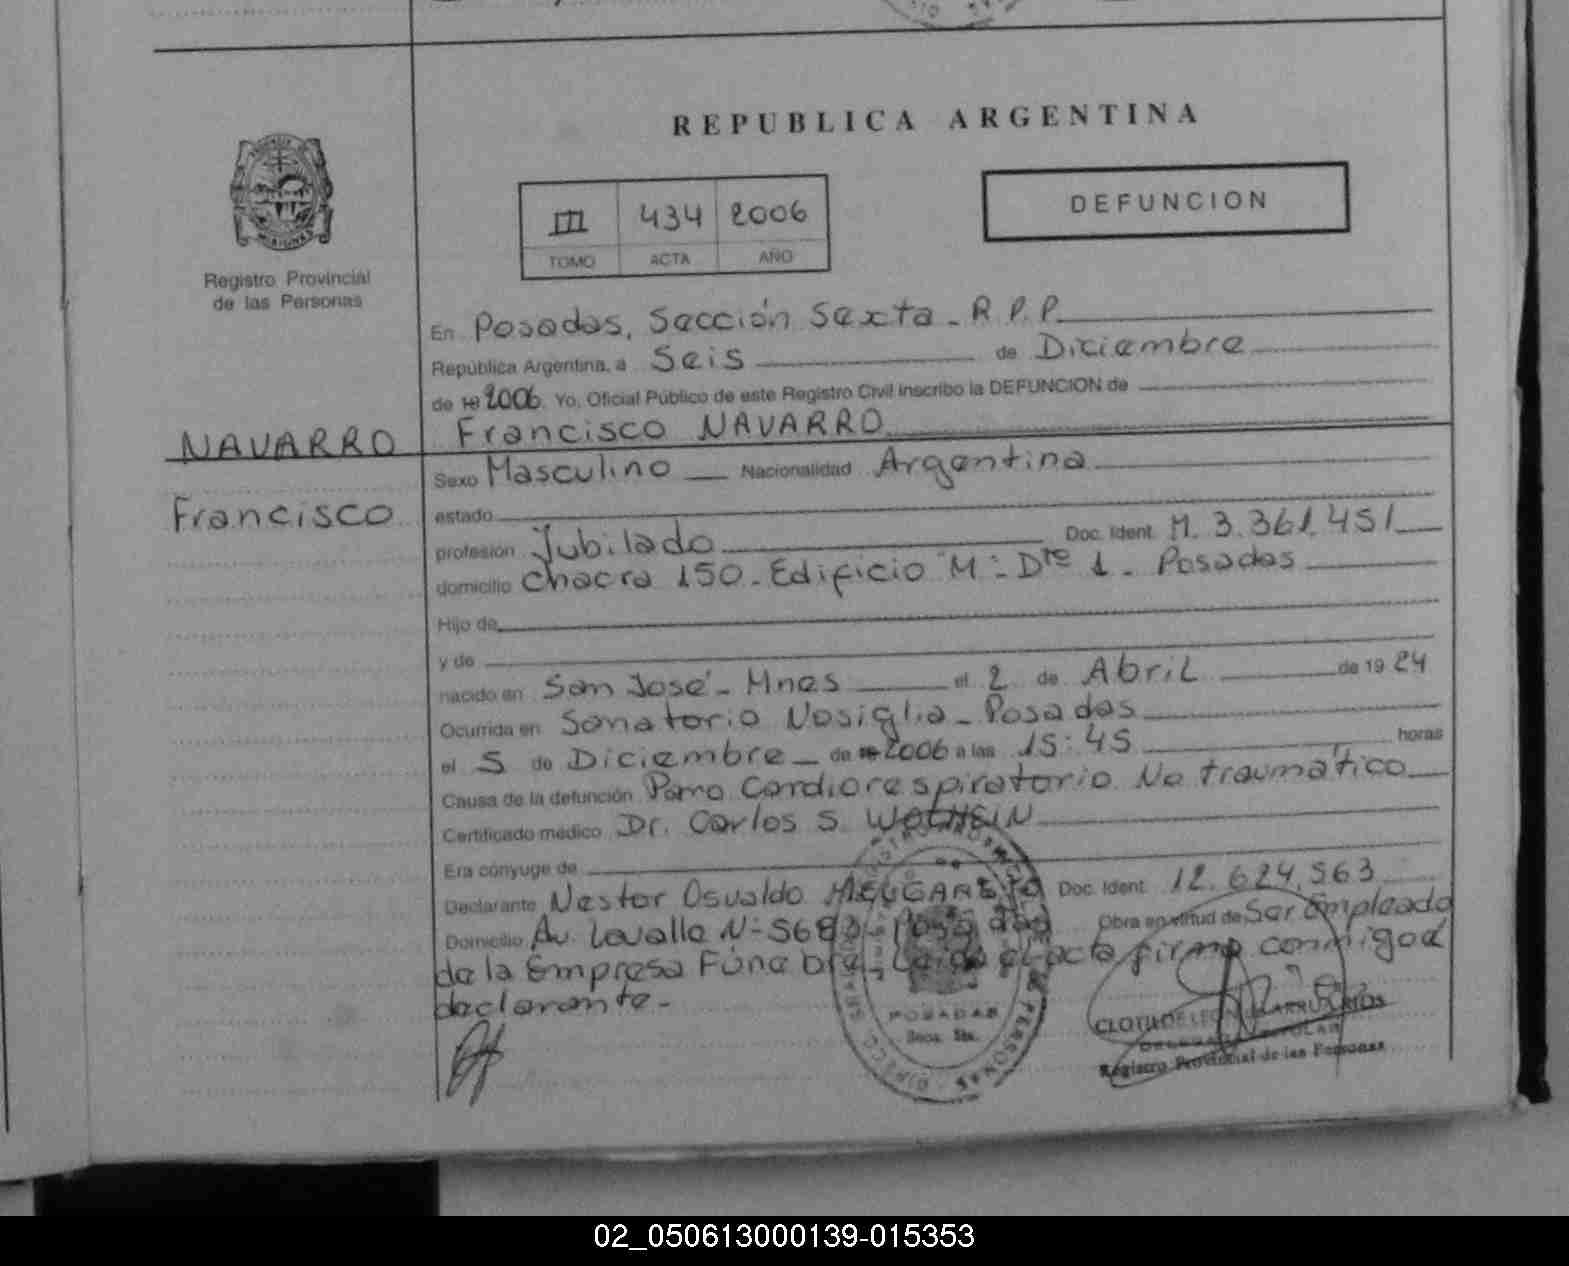 REPUBLICA ARGENTINA
DEFUNCION
III 434 2006
TOMO ACTA AÑO
Registro Provincial
de las Personas
En Posadas, Sección Sexta - R.P.P.
República Argentina, a Seis de Diciembre
de 19 2006 Yo, Oficial Público de este Registro Civil inscribo la DEFUNCION de
NAVARRO Francisco NAVARRO
Francisco
Sexo Masculino Nacionalidad Argentina
estado
profesión Jubilado Doc. Ident. M. 3.361.451
domicilio Chacra 150 - Edificio "M" - Dte 1 - Posadas
Hijo de
y de
nacido en San José - Mnes el 2 de Abril de 19 24
Ocurrida en Sanatorio Nosiglia - Posadas
el 5 de Diciembre de 19 2006 a las 15:45 horas
Causa de la defunción Paro Cardiorespiratorio No traumático
Certificado médico Dr. Carlos S.
Era cónyuge de
Declarante Nestor Osvaldo Doc. Ident. 12.624.563
Domicilio Av. Lavalle Nº Posadas Obra en virtud de Ser Empleado
de la Empresa Fúnebre, Leída el acta firma conmigo el
declarante -
POSADAS
Secc. 6ta.
PERSONAS
Registro Provincial de las Personas
02_050613000139-015353